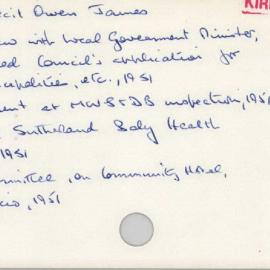 KIR
cil Owen James
ew with Local Government Minister,
ed Council's application for
capalities, etc., 1951
ent at MWS&DB inspection, 1951
Sutherland Baby Health
1951
ommittee, on Community Hotel,
1951